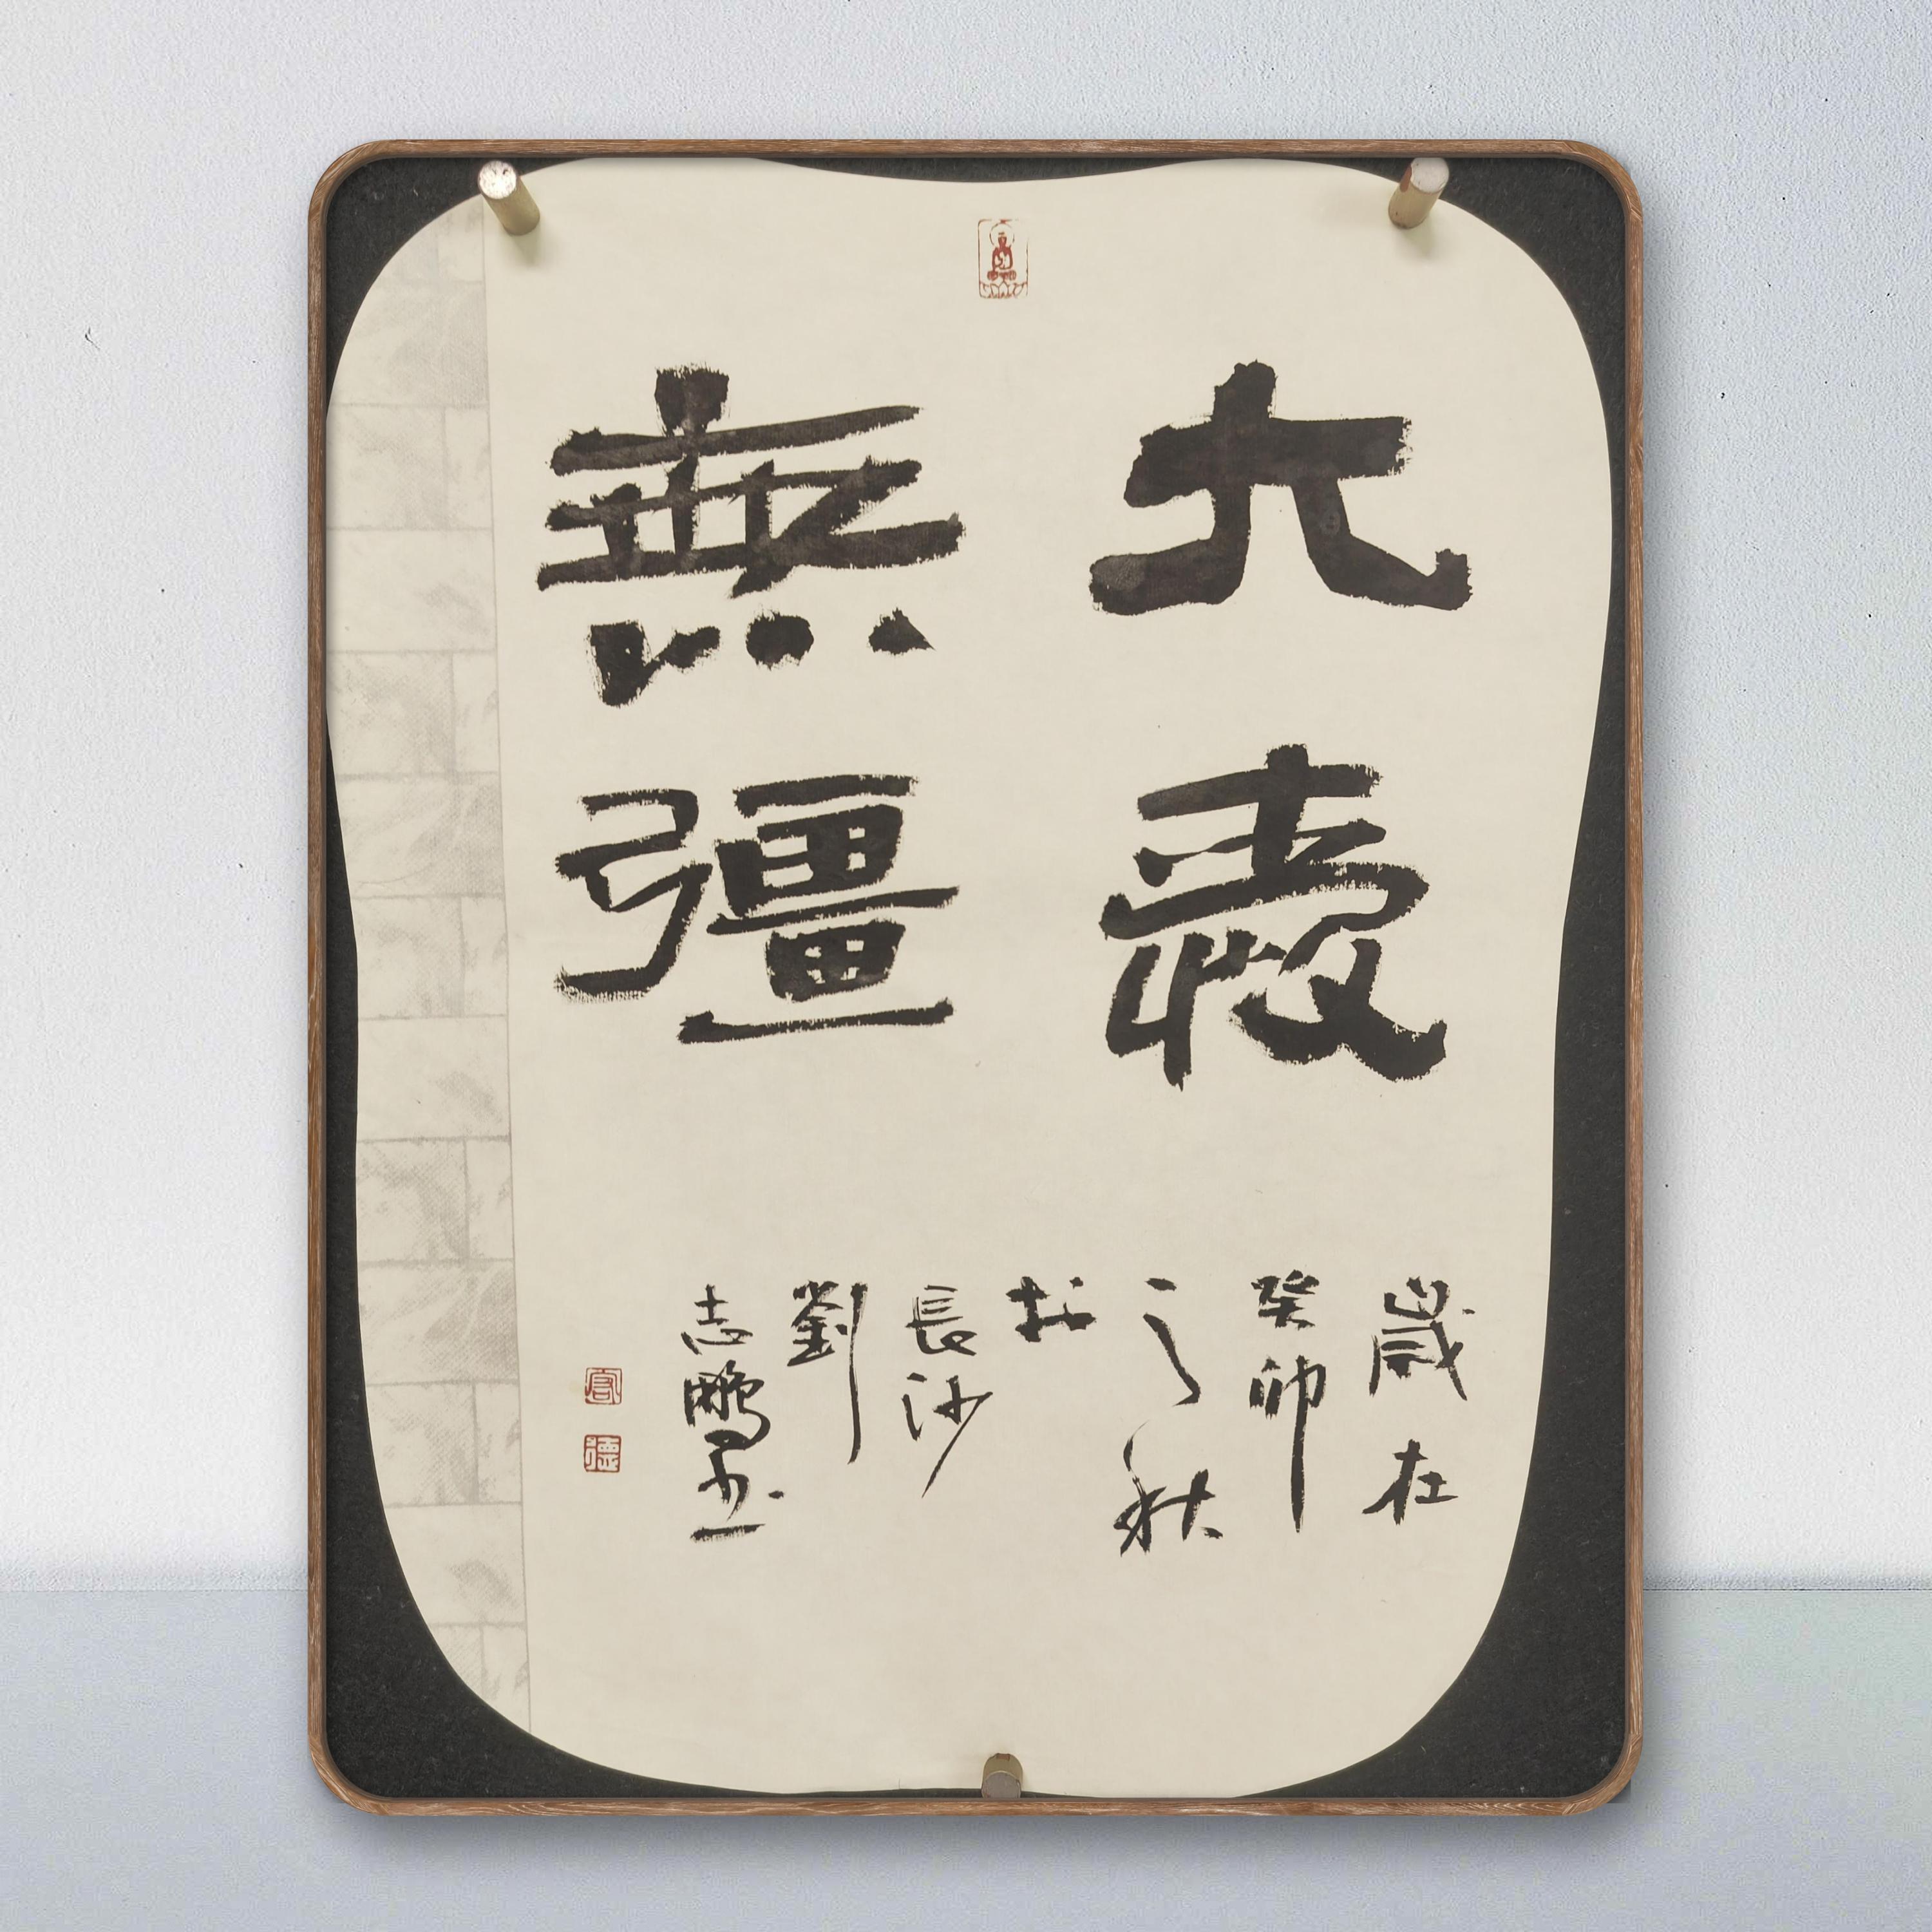 大愛
無彊
歲在
癸卯
之秋
於
長沙
劉
志鵬書
德